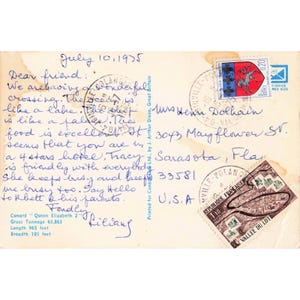 July 10, 1975
Dear friend:
We are having a wonderful
crossing. The sea is
like a lake. The ship
is like a palace. The
food is excellent. It
seems that you are in
a 4 stars hotel. Tracy
is friendly with everybody
She keeps busy and keeps
me busy too. Say Hello
to Albert & his parents.
Fondly
Liliany
Cunard "Queen Elizabeth 2"
Gross Tonnage 65,863
Length 963 feet
Breadth 105 feet
by J. Arthur Dixon, Great Britain
Mrs Henri
3093 Mayflower St.
Sarasota, Fla
33581
U.S.A
VALLEE DU LOT